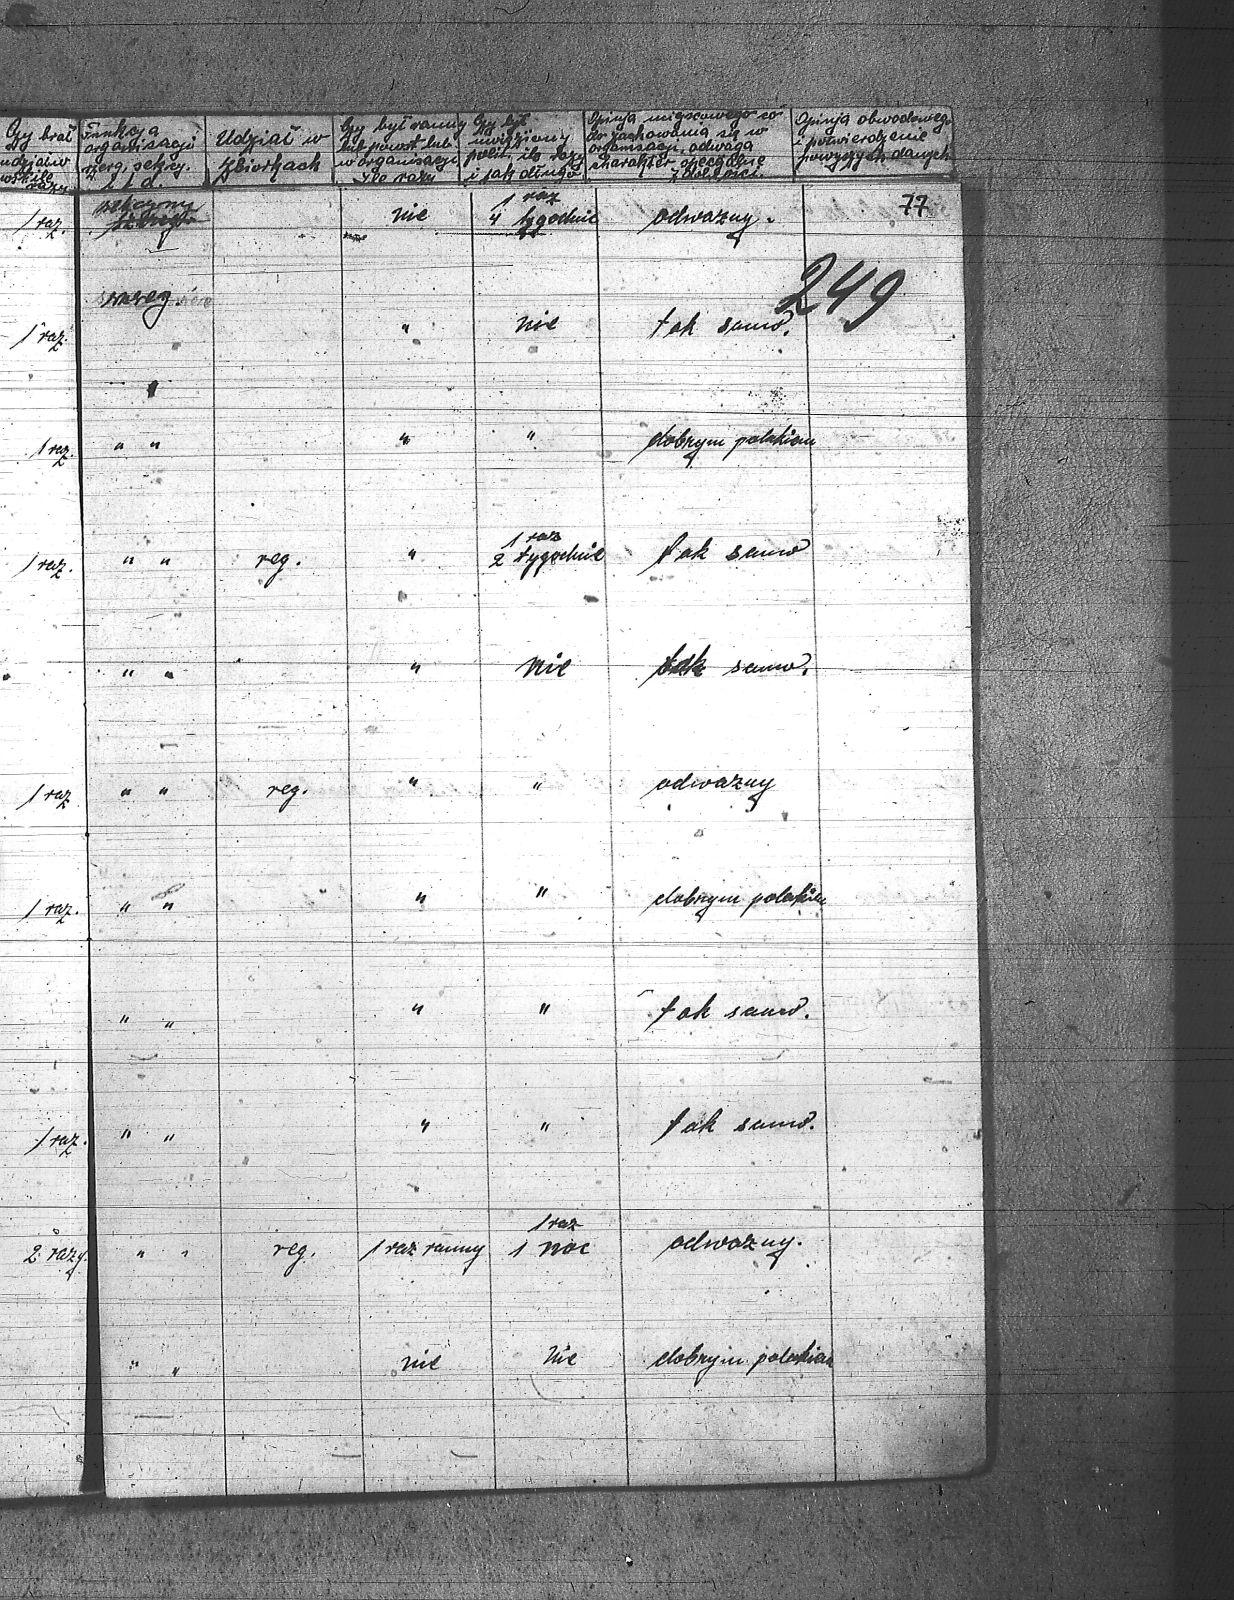 Czy brał
udział w
razy
Funkcja
organisacji
szereg. sekcyj.
i t. d.
Udział w
zbiorkach
Czy był ranny
lub powst. lub
w organisacji
Ile razy
Czy był
uwięziony
polit. ile razy
i jak długo
Opinja miejscowego co
do zachowania się w
organisacji, odwaga
charakter specjalne
zdolności.
Opinja obwodowego
i potwierdzenie
powyższych danych
77
249
1 raz.
nie
1 raz
4 tygodnie
odważny.
szereg.
1 raz.
"
nie
tak samo.
"
1 raz.
" "
"
"
dobrym polakiem
1 raz.
" "
reg.
"
1 raz
2 tygodnie
tak samo
" "
"
nie
tak samo.
1 raz
" "
reg.
"
"
odważny
1 raz.
" "
"
"
dobrym polakiem
" "
"
"
tak samo.
1 raz.
" "
"
"
tak samo.
2 razy.
" "
reg.
1 raz ranny
1 raz
1 noc
odważny.
" "
nie
nie
dobrym polakiem